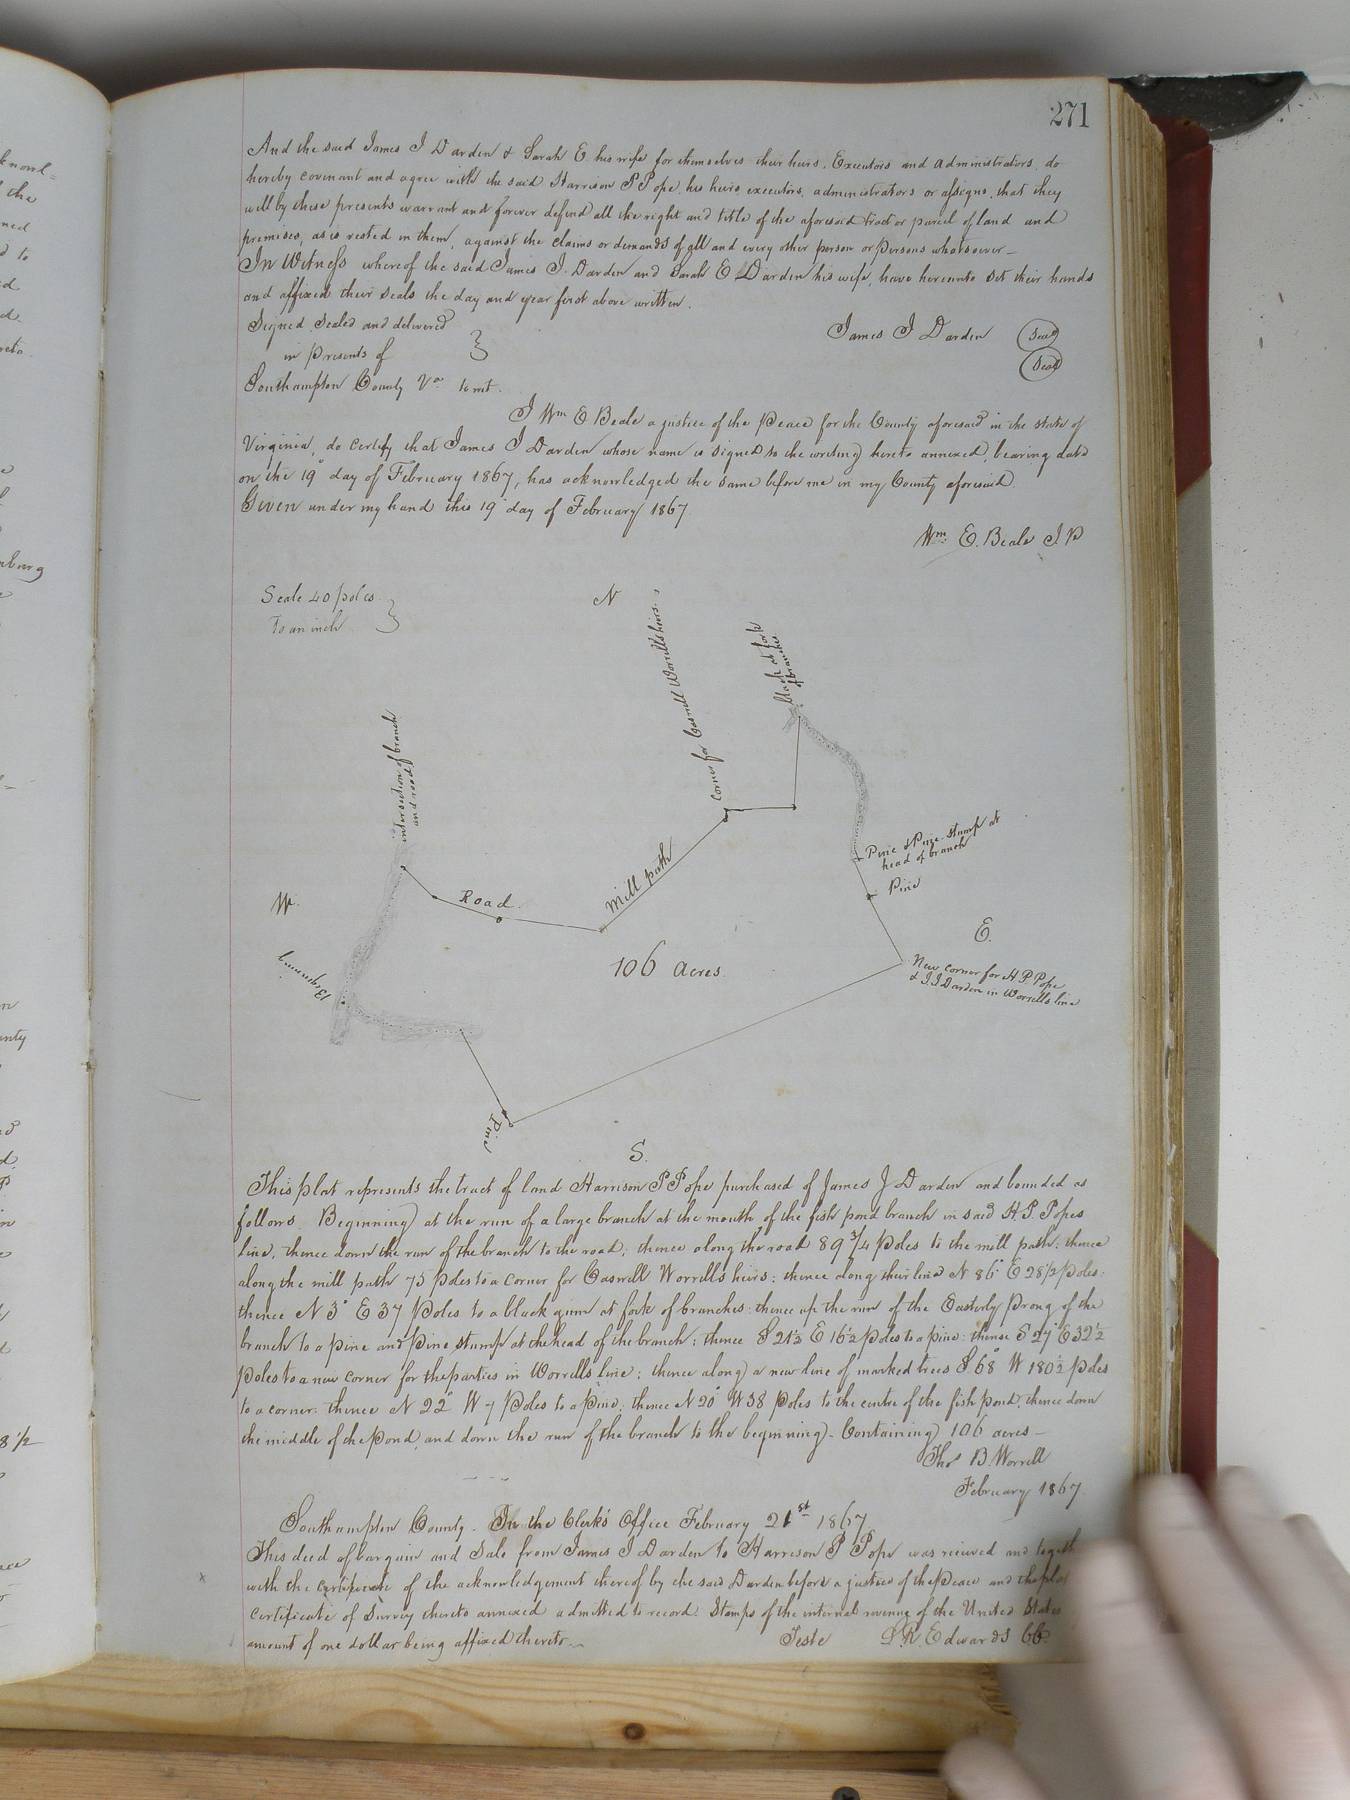 271
And the said James I Darden & Sarah E his wife for themselves their heirs, Executors and administrators, do
hereby covenant and agree with the said Harrison P Pope, his heirs, executors, administrators or assigns, that they
will by these presents warrant and forever defend all the right and title of the aforesaid tract or parcel of land and
premises, as is vested in them, against the claims or demands of all and every other person or persons whatsoever—
In Witness whereof the said James I. Darden and Sarah E Darden his wife, have hereunto set their hands
and affixed their seals the day and year first above written.
Signed Sealed and delivered
in presents of
James I Darden Seal
Seal
Southampton County Va to wit.
I Wm E Beale a justice of the Peace for the County aforesaid in the state of
Virginia, do certify that James I Darden whose name is signed to the writing hereto annexed, bearing date
on the 19 day of February 1867, has acknowledged the same before me in my County aforesaid
Given under my hand this 19 day of February 1867
Wm. E. Beale J.P
Scale 40 poles
to an inch
N
corner for Caswell Worrells heirs
black at fork
of branches
intersection of branch
and road
Pine & Pine stump at
head of branch
Pine
W.
Road.
Mill path
E.
106 acres
Beginning
New corner for H.P. Pope
& I.I Darden in Worrells line
Pine
S.
This plat represents the tract of land Harrison P Pope purchased of James J Darden and bounded as
follows. Beginning at the run of a large branch at the mouth of the fish pond branch in said H.P. Popes
line, thence down the run of the branch to the road; thence along the road 89 3/4 Poles to the mill path; thence
along the mill path 75 poles to a corner for Caswell Worrells heirs; thence along their line N 86° E 28 1/2 poles;
thence N 3° E 37 Poles to a black gum at fork of branches; thence up the run of the Easterly prong of the
branch to a pine and Pine stump at the head of the branch; thence S 21½ E 16½ poles to a pine; thence S 27° E 32½
poles to a new corner for the parties in Worrells line; thence along a new line of marked trees S 68° W 180½ poles
to a corner; thence N 22° W 7 Poles to a pine; thence N 20° W 38 poles to the centre of the fish pond, thence down
the middle of the Pond, and down the run of the branch to the beginning - Containing 106 acres—
Thos B. Worrell
February 1867.
Southampton County. In the Clerk's Office February 21st 1867
This deed of bargain and Sale from James I Darden to Harrison P Pope was received and
with the certificate of the acknowledgement thereof by the said Darden before a justice of the Peace and the
certificate of Survey thereto annexed admitted to record. Stamps of the internal revenue of the United States
amount of one dollar being affixed thereto.
Teste L R. Edwards CC